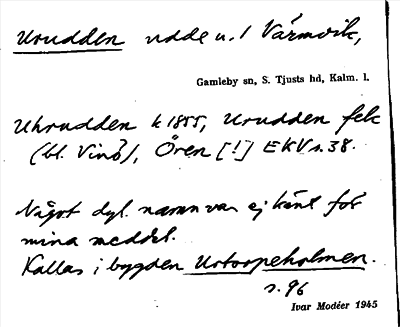 Urudden udde u. / Värmvik,
Gamleby sn, S. Tjusts hd, Kalm. l.
Uhrudden k 1855, Urudden fek
(bl. Vinö), Ören [!] EKV s. 38.
Något dyl. namn var ej känt för
mina meddel.
Kallas i bygden Urtorpeholmen.
s. 96
Ivar Modéer 1945